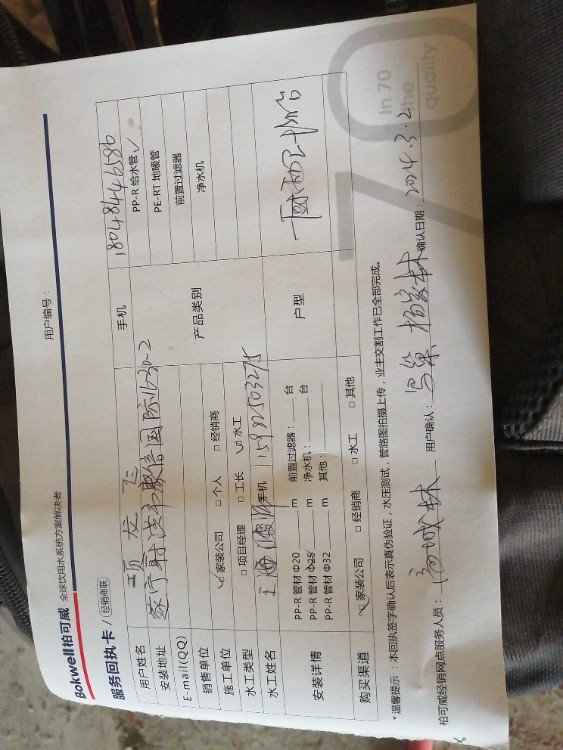 Bokwell柏可威 全球饮用水系统方案解决者
用户编号：
服务回执卡 / 经销商联
用户姓名 项龙飞 手机 18048446586
安装地址 遂宁射洪市聚信国际1-30-2
E-mail(QQ)
产品类别 PP-R 给水管 ✓
PE-RT 地暖管
前置过滤器
净水机
销售单位 ☑ 家装公司 □ 个人 □ 经销商
施工单位
水工类型 □ 项目经理 □ 工长 ☑ 水工
水工姓名 手机
安装详情 PP-R 管材 Φ20 m 前置过滤器： 台
PP-R 管材 Φ25 m 净水机： 台
PP-R 管材 Φ32 m 其他：
户型
购买渠道 ☑ 家装公司 □ 经销商 □ 水工 □ 其他
*温馨提示：本回执签字确认后表示真伪验证，水压测试，管路图拍摄上传，业主交割工作已全部完成。
柏可威经销网点服务人员： 用户确认： 确认日期：2024.3.2
70
In 70
the
quality